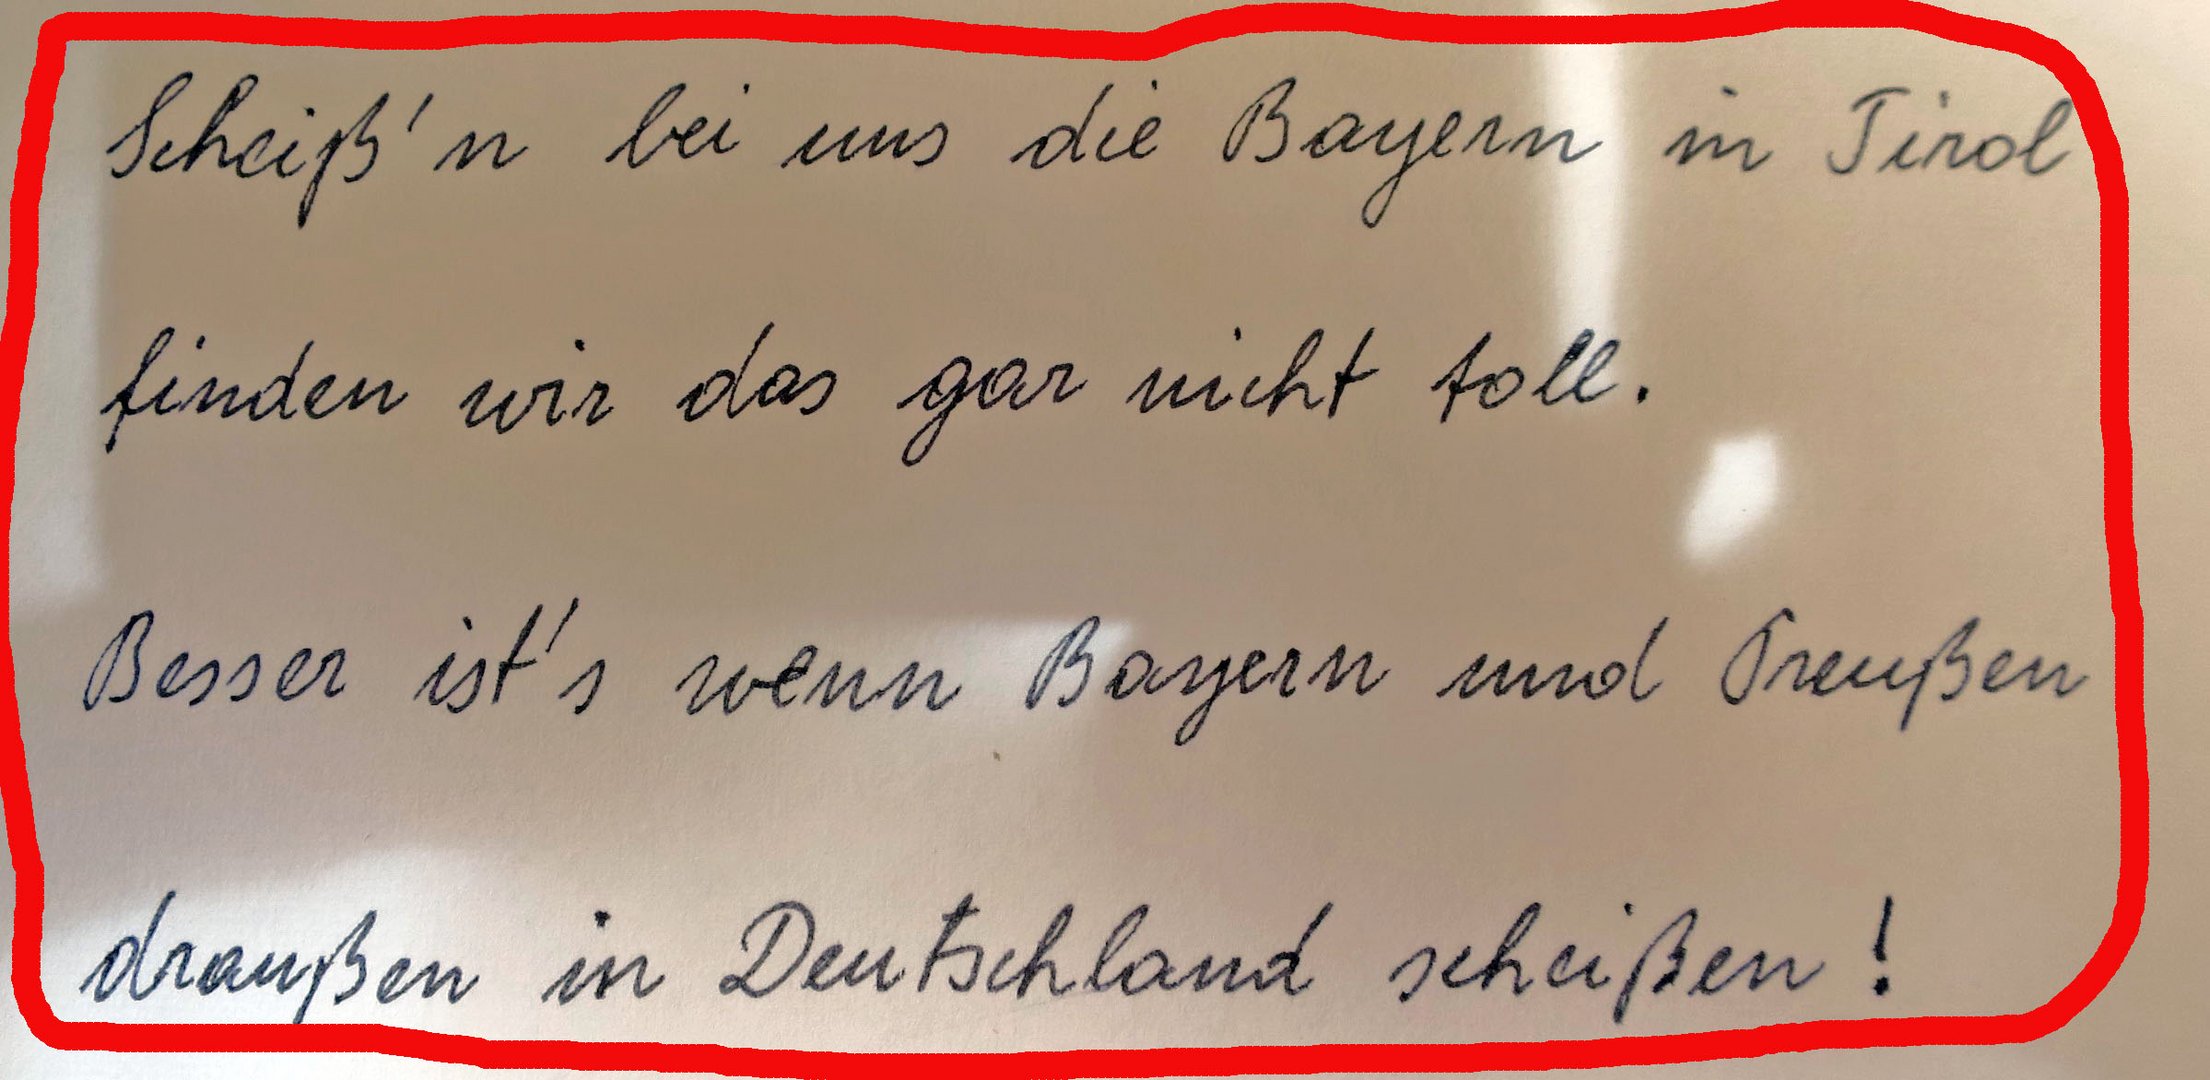 Scheiß'n bei uns die Bayern in Tirol
finden wir das gar nicht toll.
Besser ist's wenn Bayern und Preußen
draußen in Deutschland scheißen!